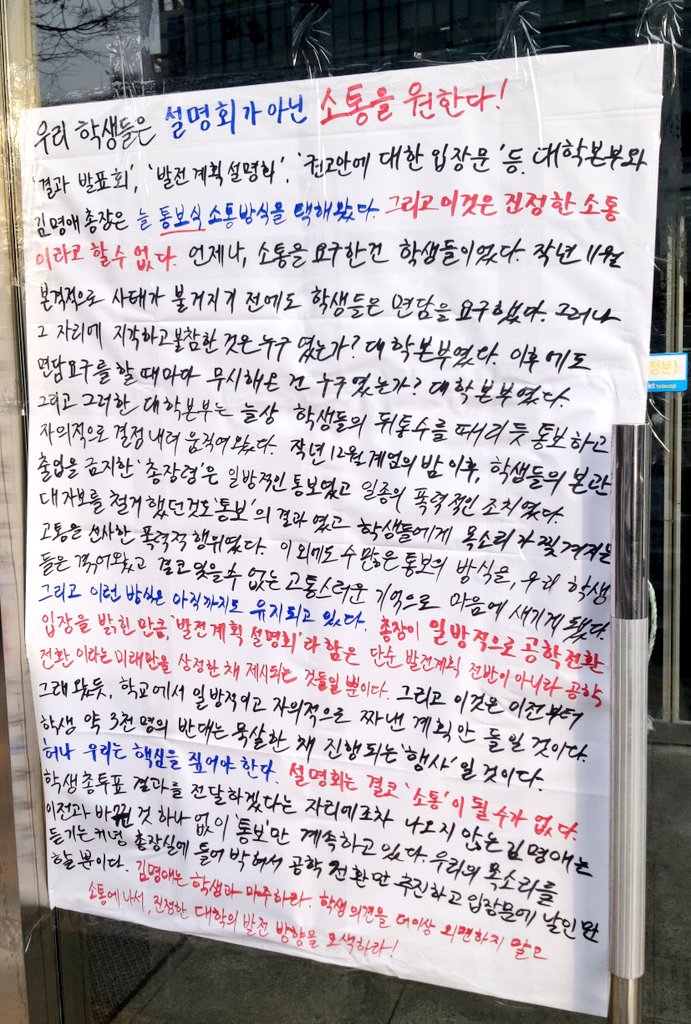 우리 학생들은 설명회가 아닌 소통을 원한다!
'결과 발표회', '발전 계획 설명회', '권고안에 대한 입장문' 등. 대학본부와
김명애 총장은 늘 통보식 소통방식을 택해왔다. 그리고 이것은 진정한 소통
이라고 할 수 없다. 언제나, 소통을 요구한건 학생들이었다. 작년 11월
본격적으로 사태가 불거지기 전에도 학생들은 면담을 요구했다. 그러나
그 자리에 지각하고 불참한 것은 누구였는가? 대학본부였다. 이후에도
면담요구를 할 때마다 무시해온 건 누구였는가? 대학본부였다.
그리고 그러한 대학본부는 늘상 학생들의 뒤통수를 때리듯 통보하고
자의적으로 결정 내려 움직여왔다. 작년 12월 계엄의 밤 이후, 학생들의 본관
출입을 금지한 '총장령'은 일방적인 통보였고 일종의 폭력적인 조치였다.
대자보를 철거했던것도 '통보'의 결과였고 학생들에게 목소리가 찢겨지는
고통을 선사한 폭력적 행위였다. 이 외에도 수많은 통보의 방식을, 우리 학생
들은 겪어왔고 결코 잊을 수 없는 고통스러운 기억으로 마음에 새기게 됐다.
그리고 이런 방식은 아직까지도 유지되고 있다. 총장이 일방적으로 공학전환
입장을 밝힌 만큼, '발전계획 설명회'라 함은 단순 발전계획 전반이 아니라 공학
전환 이라는 미래만을 상정한 채 제시되는 것들일 뿐이다. 그리고 이것은 이전부터
그래왔듯, 학교에서 일방적이고 자의적으로 짜낸 계획안 들일 것이다.
학생 약 3천 명의 반대는 묵살한 채 진행되는 '행사'일 것이다.
허나 우리는 핵심을 짚어야 한다. 설명회는 결코 '소통'이 될 수가 없다.
학생총투표 결과를 전달하겠다는 자리에조차 나오지 않는 김명애는
이전과 바뀐 것 하나 없이 '통보'만 계속하고 있다. 우리의 목소리를
듣기는커녕 총장실에 틀어박혀서 공학 전환만 추진하고 입장문에 날인만
할 뿐이다. 김명애는 학생과 마주하라. 학생 의견을 더이상 외면하지 말고
소통에 나서, 진정한 대학의 발전 방향을 모색하라!
정문)
kt telecop